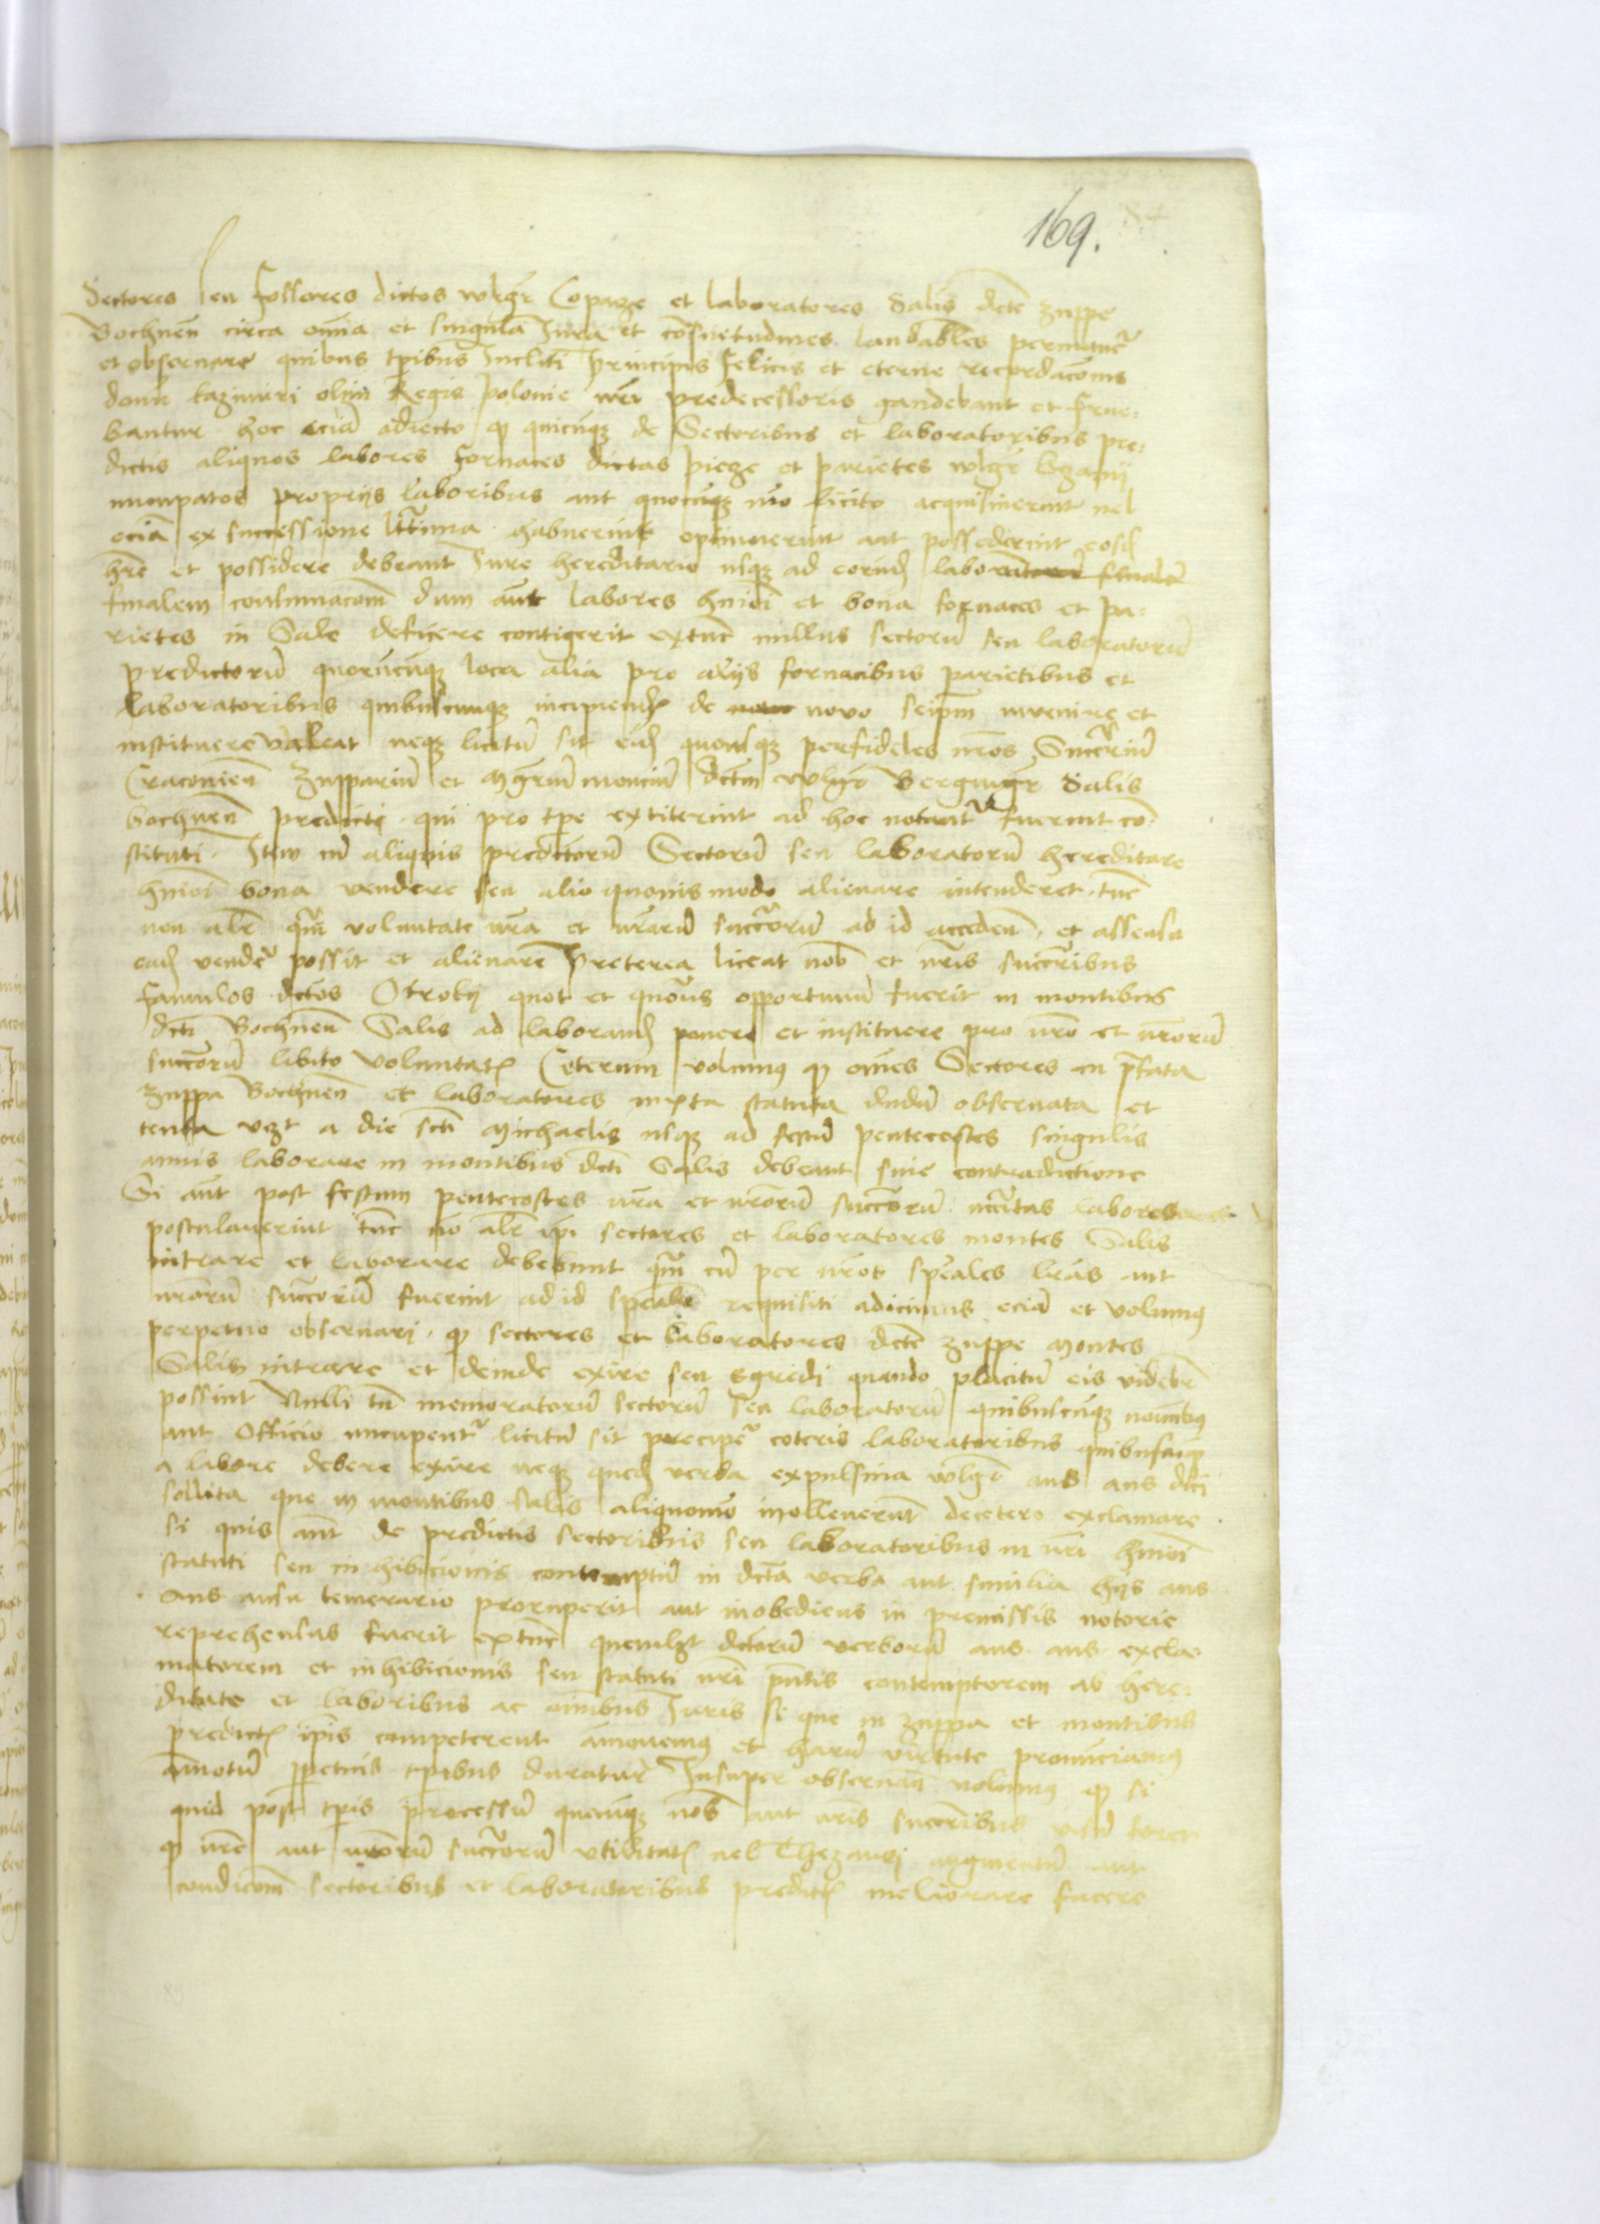 169.
Sectores seu fossores dictos wlgr Copacze et laboratores Salis dcte zuppe
Bochnen circa omnia et singula Jura et consuetudines laudabiles permittere
et observare quibus tpibus Incliti Principis felicis et eterne recordacionis
domi Kazimiri olim Regis Polonie nri predecessoris gaudebant et frue-
bantur hoc eciam adiecto q quicuqz de Sectoribus et laboratoribus pre-
dictis aliquos labores fornaces dictas piecze et parietes wlgr
nuncupatos proprijs laboribus aut quocuqz mo licito acquisiuerint uel
eciam ex successione lttima habuerint optinuerint aut possederint eosd
hre et possidere debeant Jure hereditario usqz ad eorund
finalem consumacom dum aut labores hmoi et bona fornaces et pa-
rietes in Sale deficere contigerit extunc nullus sectoru seu laboratoru
predictoru quorucuqz loca alia pro alijs fornacibus parietibus et
laboratoribus quibuscunqz incipiend de novo seipm invenire et
instituere valeat neqz licitu sit eid quousqz per fideles nros Succriu
Cracovien Zuppariu et Mgrum monciu dctm wlgr Bergmgr Salis
bochnen predicti qui pro tpe extiterint ad hoc fuerint co-
stituti Item cu aliquis predictoru Sectoru seu laboratoru hereditare
hmoi bona vendere seu alio quovis modo alienare intenderet tuc
non alr qm voluntate nra et nroru succoru ad id acceden et assensu
ead vendere possit et alienare Preterea liceat nob et nris succribus
famulos dctos Otroky quot et quos opportunu fuerit in montibus
dcti Bochnen Salis ad laborand ponere et instituere pro nro et nroru
succoru libito voluntat Ceterum volumus q omnes Sectores in pfata
zuppa Bochnen et laboratores iuxta statuta dudu observata et
tenta vczt a die scti Michaelis usqz ad festu pentecostes singulis
annis laborare in montibus dcti Salis debeant sine contradictione
Si aut post festum pentecostes nra et nroru succoru nccitas labores
postulauerint tuc no alr ipi sectores et laboratores montes Salis
intrare et laborare debebunt qm cu per nros spcales lras aut
nroru succoru fuerint ad id spcalr requisiti adicimus eciam et volumus
perpetuo observari q sectores et laboratores dcte zuppe montes
Salis intrare et deinde exire seu egredi quando placitu eis videbr
possint Nulli tn memoratoru sectoru seu laboratoru quibuscuqz nominibus
aut Officio nuncupentr licitu sit precipere ceteris laboratoribus quibuscuqz
a labore debere exire neqz qued verba expulsiva wlgr aus aus dici
solita que in montibus salis aliquomo inolleuerunt decetero exclamare
si quis aut de predictis sectoribus seu laboratoribus in nri hmoi
statuti seu inhibicionis contemptu in dcta verba aut similia hijs aus
aus ausu temerario proruperit aut inobediens in premissis notorie
reprehensus fuerit extunc quemlzt dctoru verboru aus aus excla-
matorem et inhibicionis seu statuti nri pntis contemptorem ab here-
ditate et laboribus ac omnibus Juris si que in zuppa et montibus
predict ipis competerent amouemus et haru virtute pronuciamus
amotu ppetuis tpibus duratur Insuper observari volumus q si
quid post tpis processu quocuqz nob aut nris succribus visu foret
q nre aut nroru succoru utilitat uel Thezauri augmentu aut
condicom sectoribus et laboratoribus predict meliorare facere